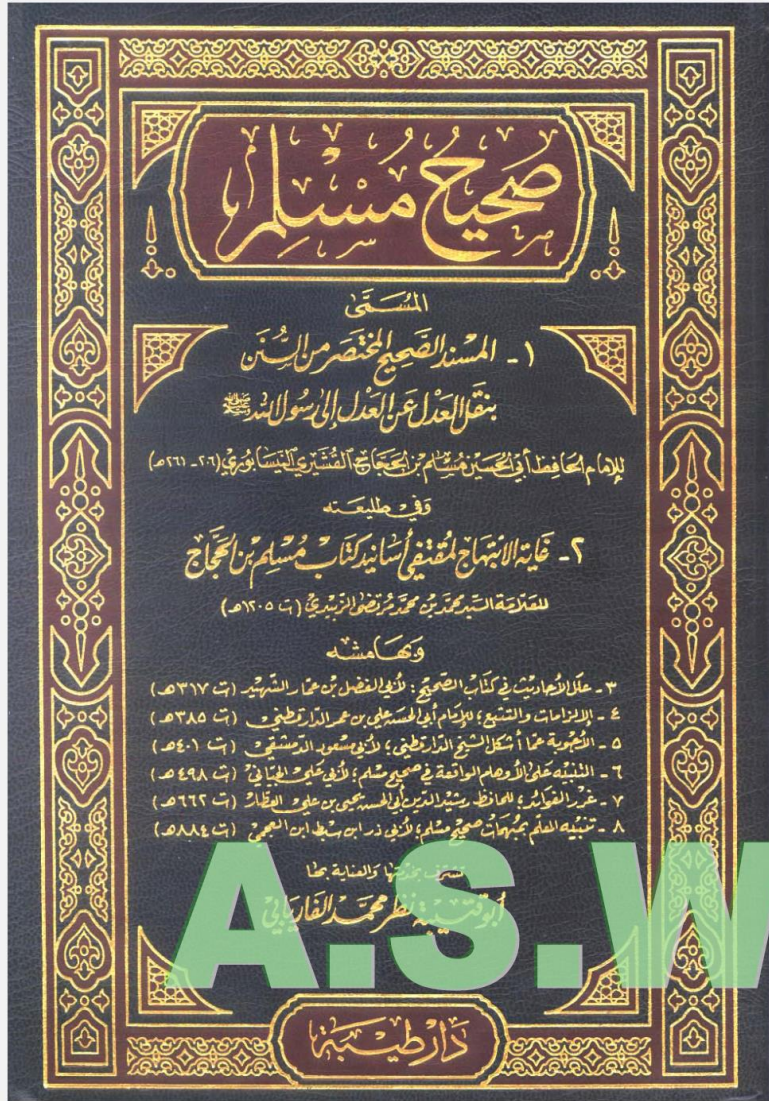 صَحِيحُ مُسْلِم
المُسَمَّى
١ - المسند الصحيح المختصر من السنن
بنقل العدل عن العدل إلى رسول الله ﷺ
للإمام الحافظ أبي الحسين مسلم بن الحجاج القشيري النيسابوري (٢٠٦ - ٢٦١هـ)
وفي طليعته
٢ - غاية الابتهاج لمقتفي أسانيد كتاب مسلم بن الحجاج
للعلامة السيد محمد بن محمد مرتضى الزبيدي (ت ١٢٠٥هـ)
وبهامشه
٣ - علل الأحاديث في كتاب الصحيح؛ لأبي الفضل بن عمار الشهيد (ت ٣١٧هـ)
٤ - الإلزامات والتتبع؛ للإمام أبي الحسن علي بن عمر الدارقطني (ت ٣٨٥هـ)
٥ - الأجوبة عما أشكل الشيخ الدارقطني؛ لأبي مسعود الدمشقي (ت ٤٠١هـ)
٦ - التنبيه على الأوهام الواقعة في صحيح مسلم؛ لأبي علي الجياني (ت ٤٩٨هـ)
٧ - غرر الفوائد؛ للحافظ رشيد الدين أبي الحسن يحيى بن علي العطار (ت ٦٦٢هـ)
٨ - تنبيه المعلم بمبهمات صحيح مسلم؛ لأبي ذر ابن سبط ابن العجمي (ت ٨٨٤هـ)
تشرف بخدمتها والعناية بها
أبو قتيبة نظر محمد الفاريابي
A.S.W
دار طيبة